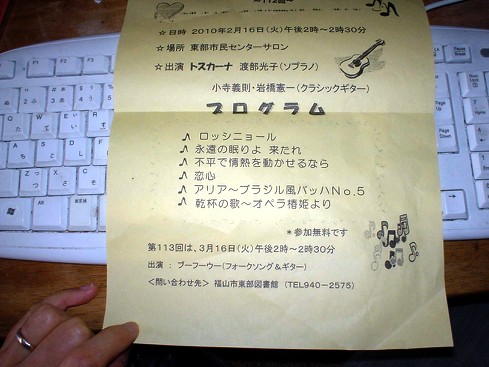 ～112回～
☆日時 2010年2月16日(火)午後2時～2時30分
☆場所 東部市民センターサロン
☆出演 トスカーナ 渡部光子(ソプラノ)
小寺義則・岩橋憲一(クラシックギター)
プログラム
ロッシニョール
永遠の眠りよ 来たれ
不平で情熱を動かせるなら
恋心
アリア～ブラジル風バッハNo.5
乾杯の歌～オペラ椿姫より
*参加無料です
第113回は、3月16日(火)午後2時～2時30分
出演 : ブーフーウー(フォークソング&ギター)
<問い合わせ先> 福山市東部図書館 (TEL940-2575)